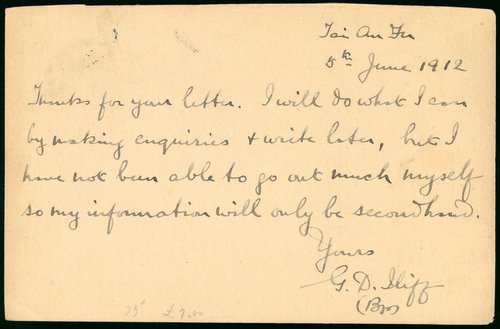 Tai An Fu
5th June 1912
Thanks for your letter. I will do what I can
by making enquiries + write later, but I
have not been able to go out much myself
so my information will only be secondhand.
Yours
G. D. Iliff
(Bp)
25 £7.00